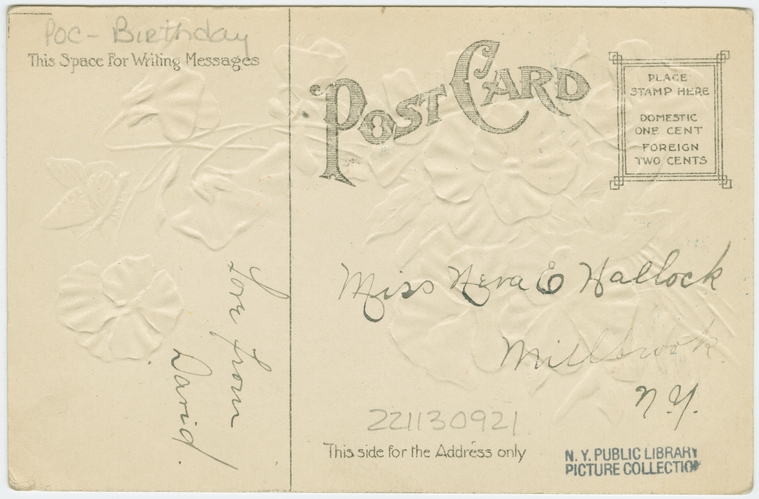 Poc - Birthday
This Space For Writing Messages
POST CARD
PLACE
STAMP HERE
DOMESTIC
ONE CENT
FOREIGN
TWO CENTS
Love from
David.
Miss Neva E Hallock
Millbrook
N.Y.
221130921
This side for the Address only
N.Y. PUBLIC LIBRARY
PICTURE COLLECTION